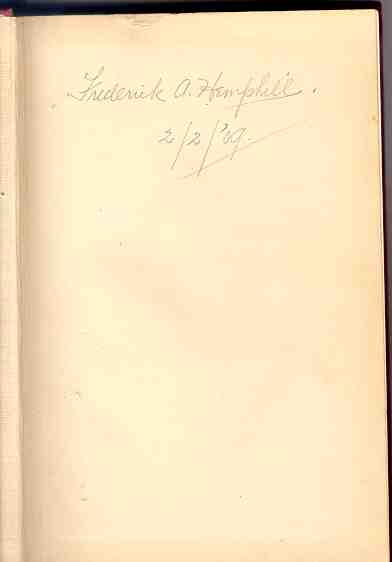 Frederick A. Hemphill.
2/2/'09.